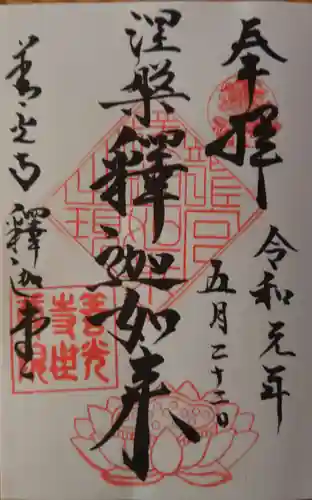 奉拝
令和元年
五月二十二日
涅槃釋迦如来
善光寺
釋迦堂